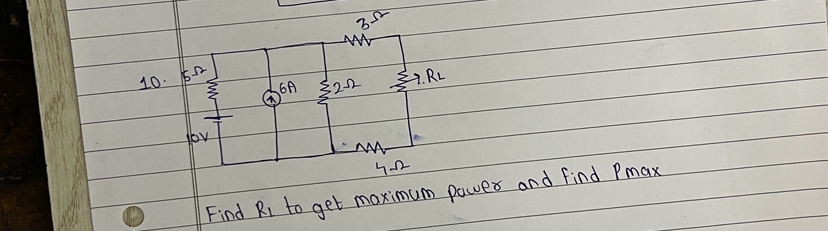 3Ω
10. 5Ω 6A 2Ω RL
10V
4Ω
Find RL to get maximum power and find Pmax